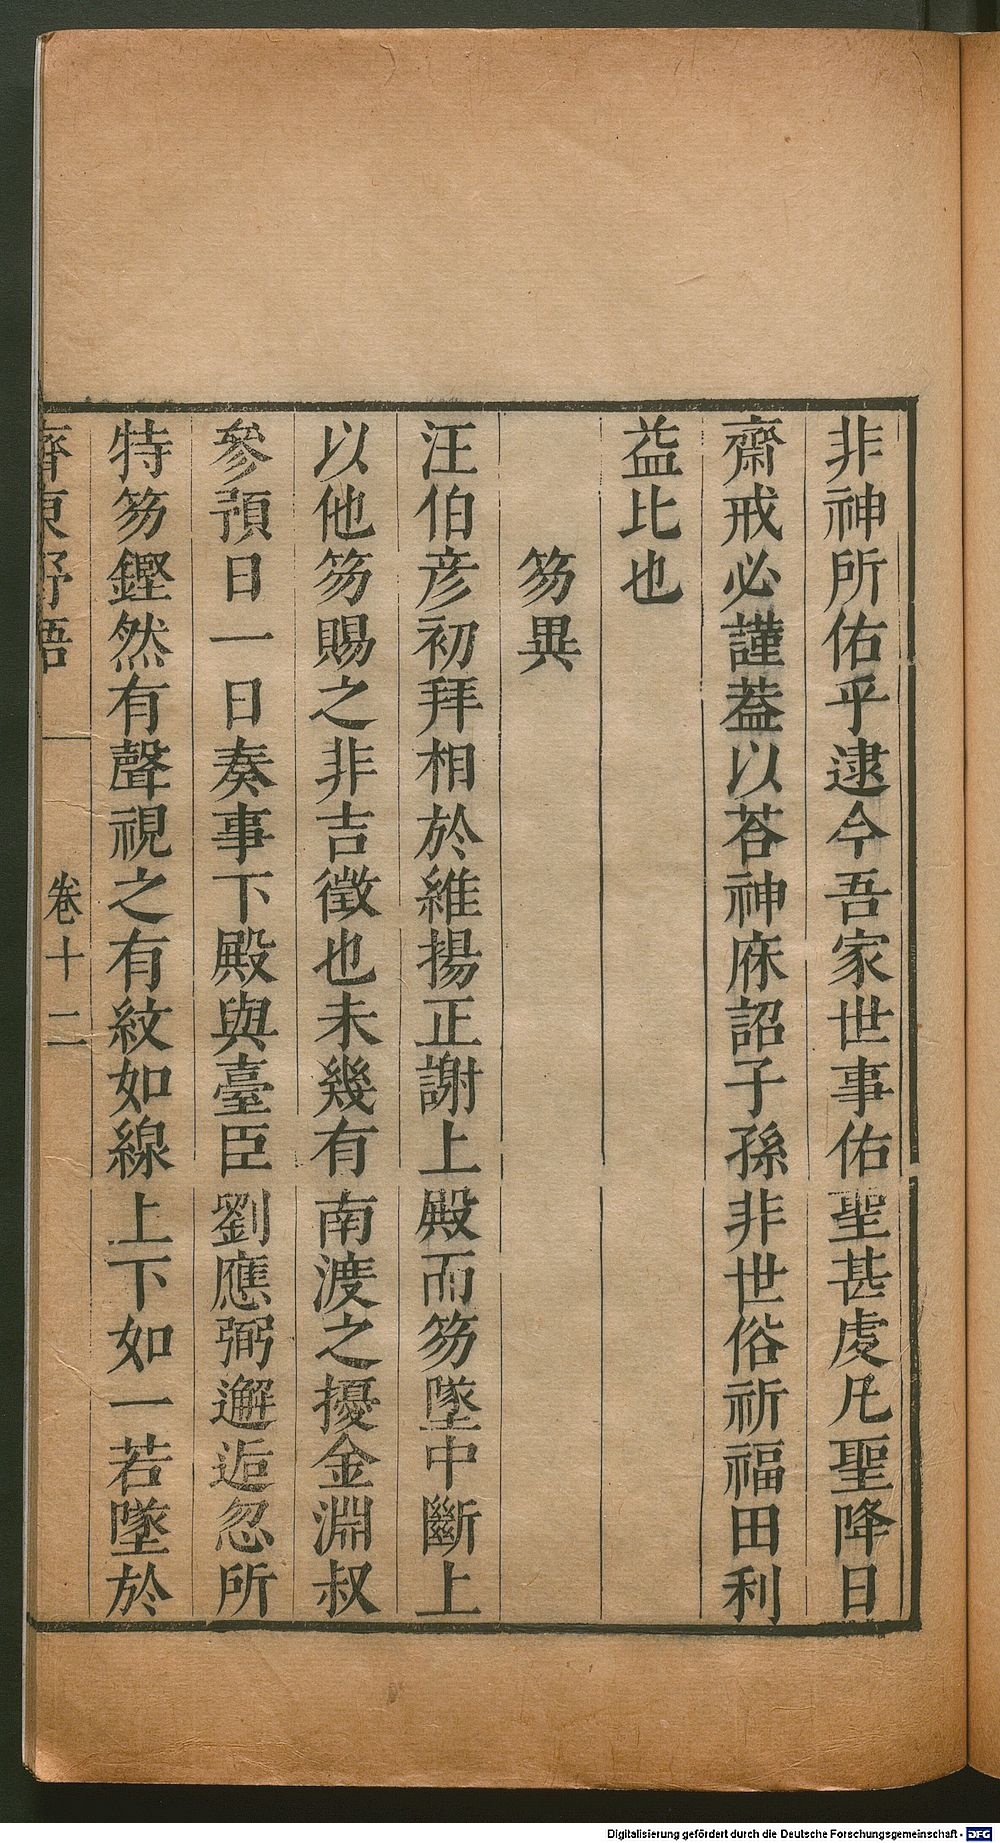 非神所佑乎逮今吾家世事佑聖甚虔凡聖降日
齋戒必謹葢以荅神庥詔子孫非世俗祈福田利
益比也
笏異
汪伯彦初拜相於維揚正謝上殿而笏墜中斷上
以他笏賜之非吉徵也未幾有南渡之擾金淵叔
參預日一日奏事下殿與臺臣劉應弼邂逅忽所
持笏鏗然有聲視之有紋如線上下如一若墜於
齊東野語
卷十二
Digitalisierung gefördert durch die Deutsche Forschungsgemeinschaft - DFG